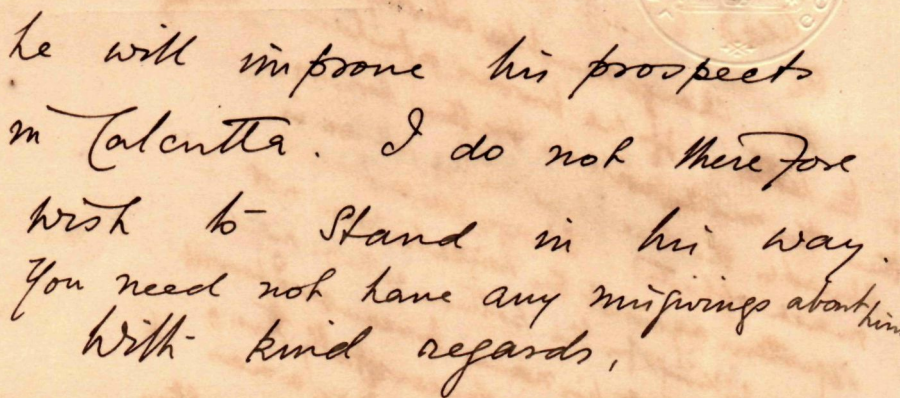 he will improve his prospects
in Calcutta. I do not therefore
wish to stand in his way.
You need not have any misgivings about him
With kind regards,